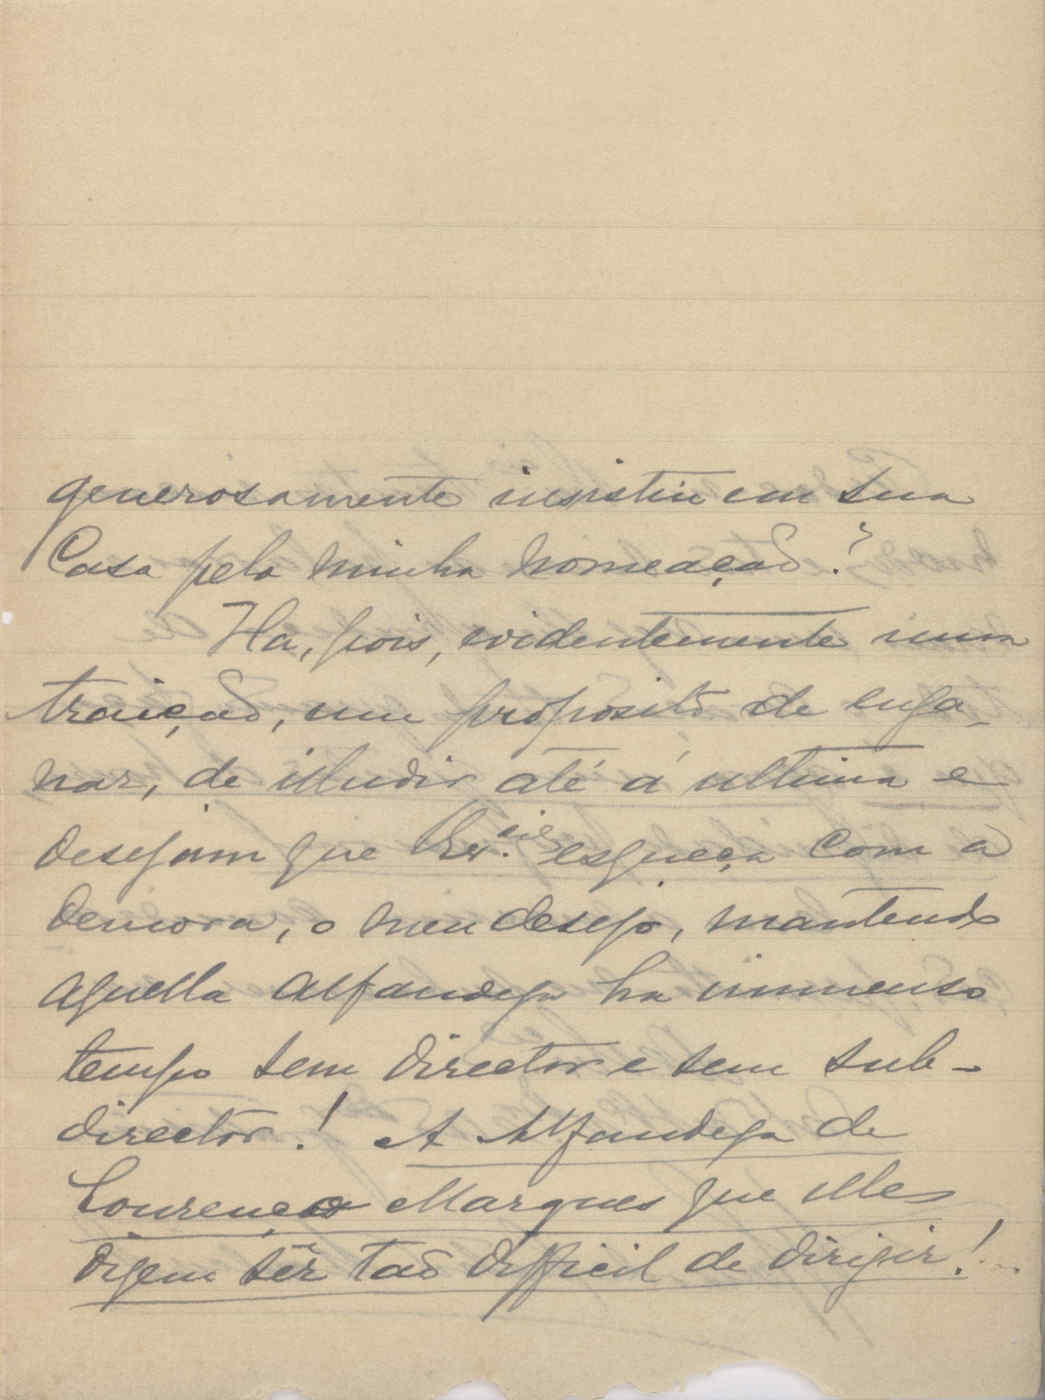 generosamente insistiu em sua
Casa pela minha nomeação?
Ha, pois, evidentemente uma
traição, um proposito de enga-
nar, de illudir até á ultima e
desejam que V. Ex.cia esqueça com a
demora, o meu desejo, mantendo
aquella Alfandega ha immenso
tempo sem director e sem sub-
director! A Alfandega de
Lourenço Marques que elles
dizem sêr tão difficil de dirigir!...